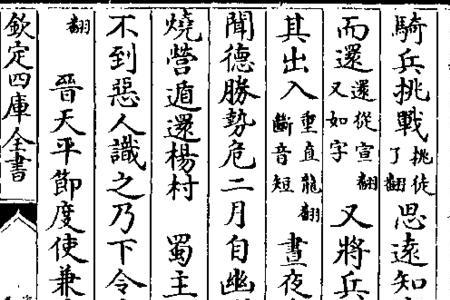 騎兵挑戰挑徒了翻思遠知
而還還從宣翻又如字又將兵
其出入重直龍翻斷音短晝夜
聞德勝勢危二月自幽
燒營遁還楊村 蜀主
不到惡人識之乃下令
翻 晉天平節度使兼
欽定四庫全書